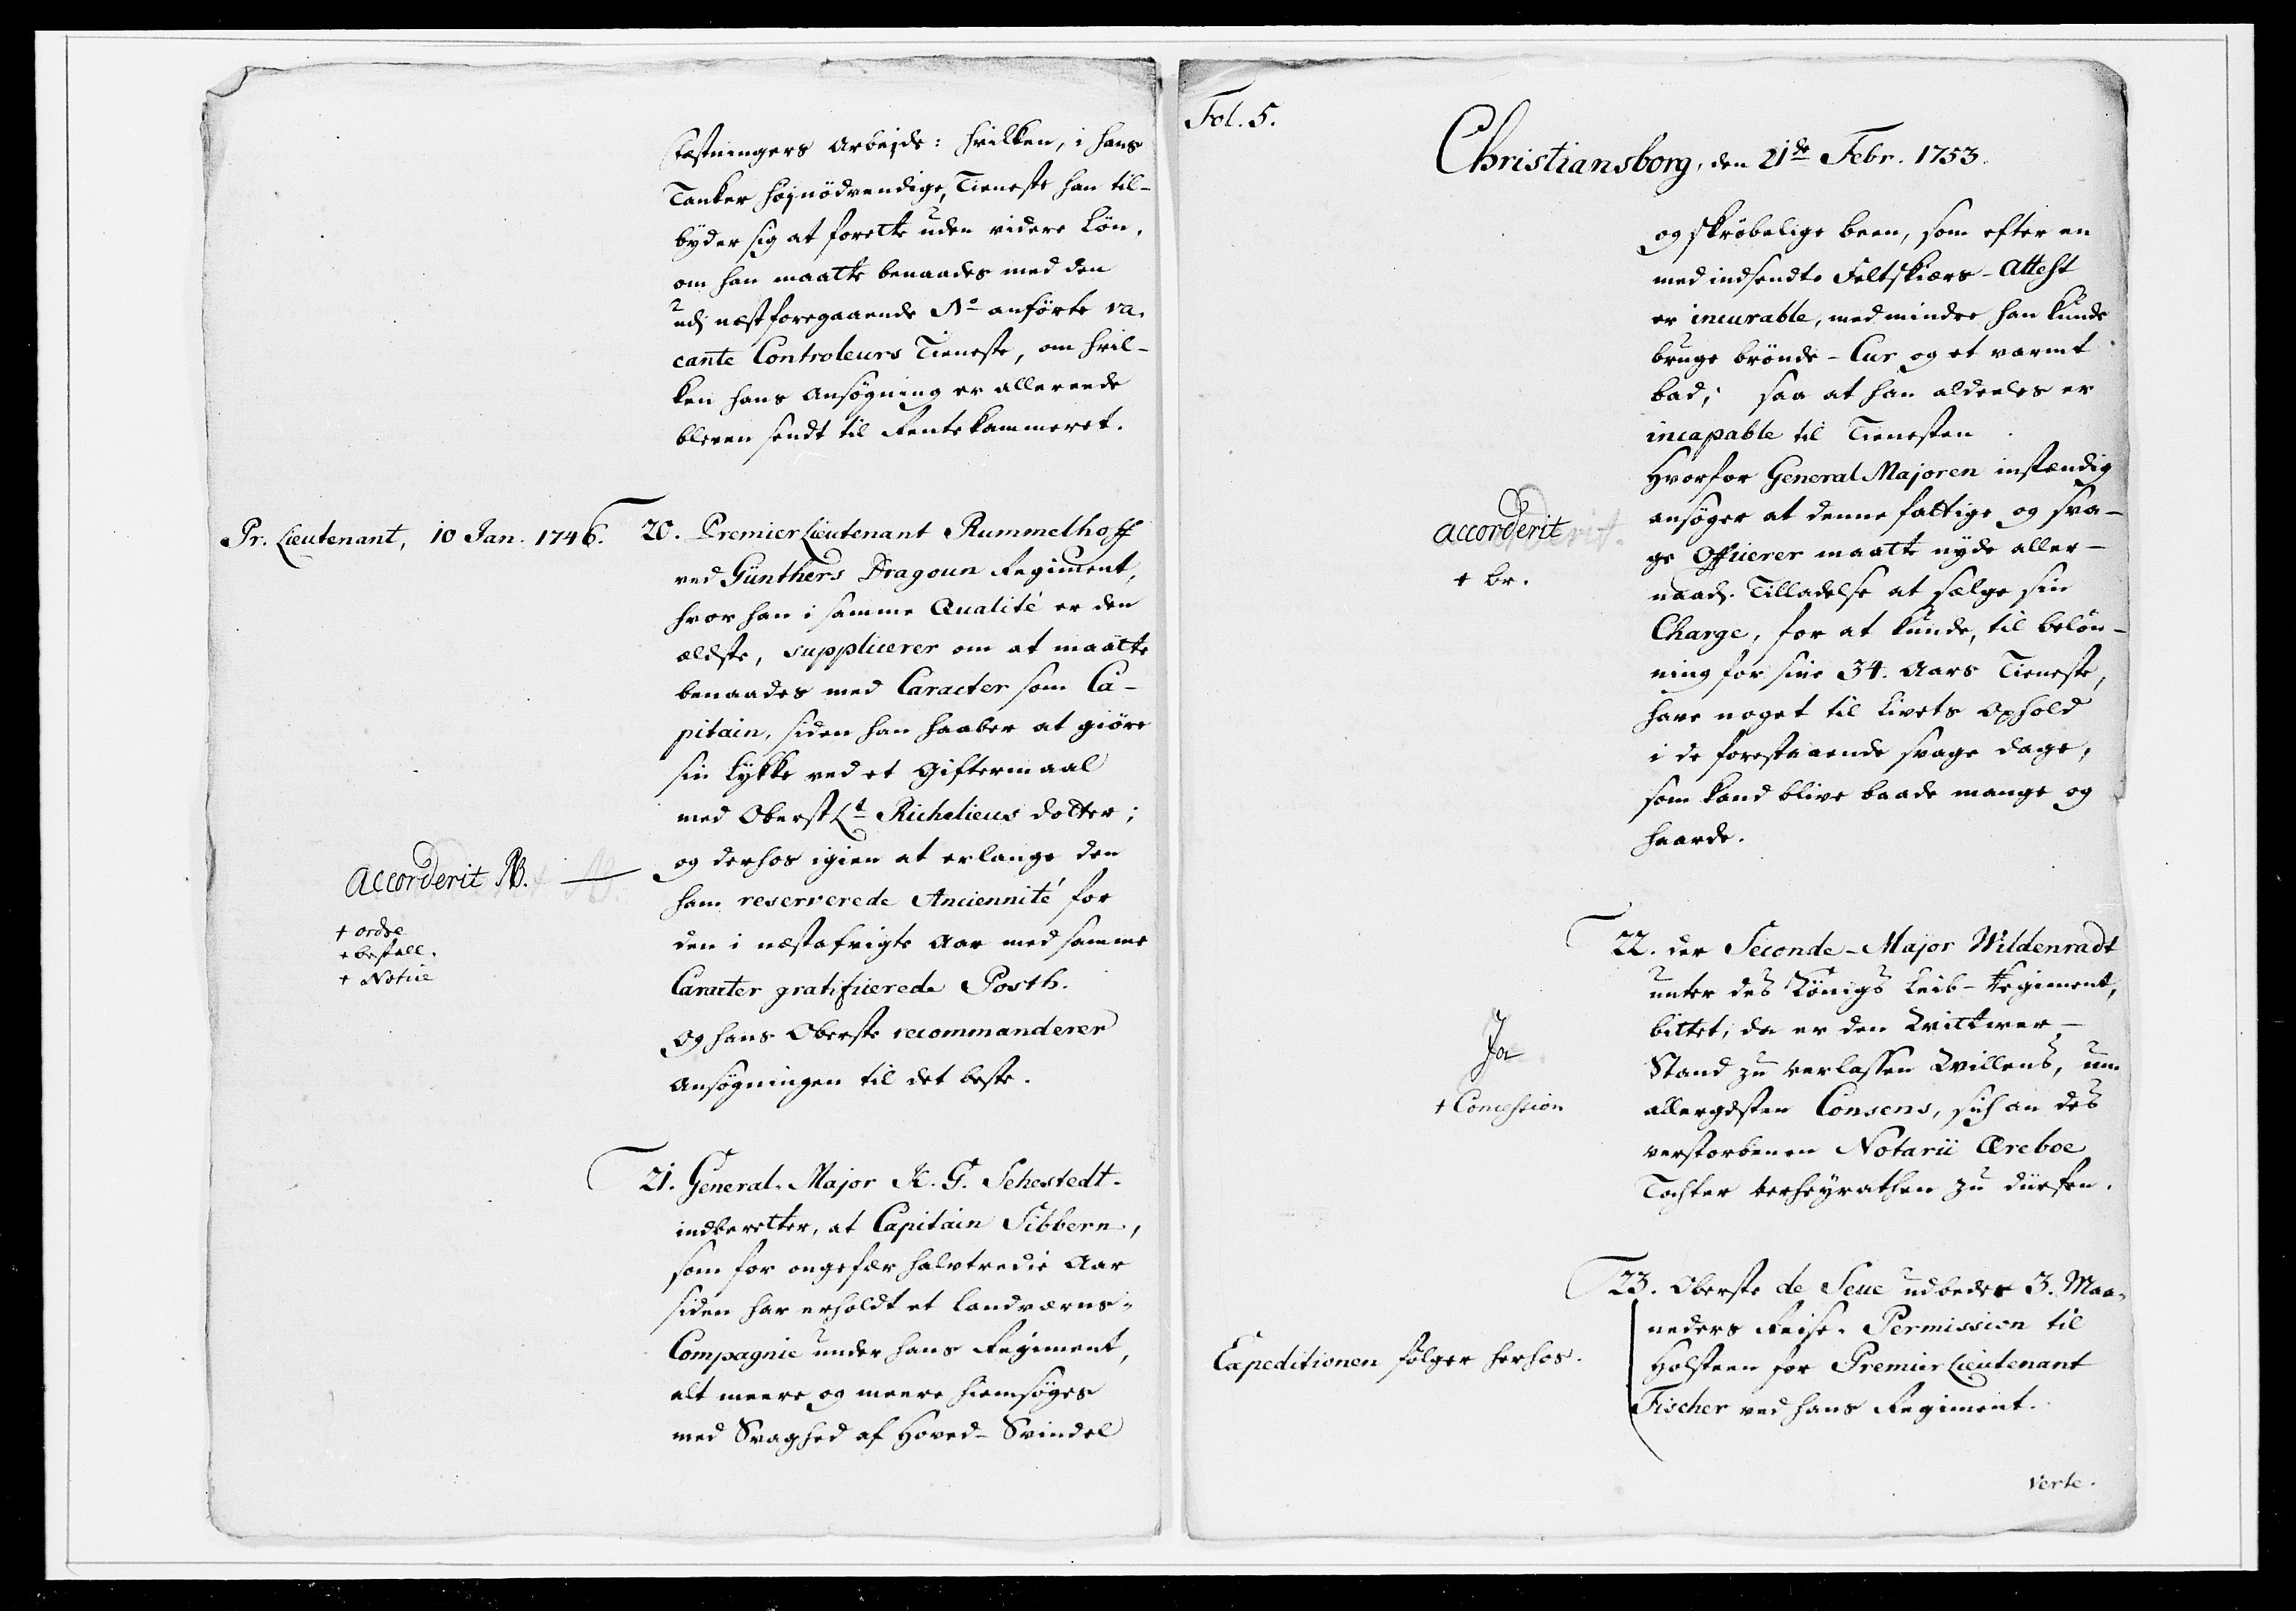 fæstningers Arbejde: hvilken, i hans
Tanker højnödvendige, Tieneste han til-
byder sig at forette uden videre Lön,
om han maatte benaades med den
udj næstforegaaende No anförte va-
cante Controleurs Tieneste, om hvil-
ken hans Ansögning er allereede
bleven sendt til Rentekammeret.
Pr. Lieutenant, 10 Jan. 1746.
20. Premier Lieutenant Rummelhoff
ved Günthers Dragoun Regiment,
hvor han i samme Qualité er den
ældste, supplicerer om at maatte
benaades med Caracter som Ca-
pitain, siden han haaber at giöre
sin Lykke ved et Giftermaal
med Oberst Lt Richelieus dotter;
og derhos igien at erlange den
ham reserverede Anciennité for
den i næstafvigte Aar med samme
Caracter gratificerede Posth.
Og hans Oberste recommanderer
Ansögningen til det beste.
Accorderit NB.
+ ordre
+ bestall.
+ Notice
21. General-Major K. G. Sehestedt
indberetter, at Capitain Sibbern,
som for ongefær halvtredie Aar
siden har erholdt et Landværns-
Compagnie under hans Regiment,
alt meere og meere hiemsöges
med Svaghed af Hoved-Svindel
Fol. 5.
Christiansborg, den 21de Febr. 1753.
og skröbelige been, som efter en
med indsendte Feltskiærs-Attest
er incurable, med mindre han kunde
bruge brönde-Cur og et varmt
bad; saa at han aldeeles er
incapable til Tienesten.
Hvorfor General Majoren instændig
ansöger at denne fattige og sva-
ge Officerer maatte nyde aller-
naads. Tilladelse at sælge sin
Charge, for at kunde, til belön-
ning for sine 34. Aars Tieneste,
have noget til Livets Ophold
i de forestaaende svage dage,
som kand blive baade mange og
haarde.
accorderit
+ br.
22. der Seconde-Major Wildenradt
unter des Königs Leib-Regiment,
bittet, da er den Wittwer-
Stand zu verlassen Willens, um
allergdsten Consens, sich an des
verstorbenen Notarii Æreboe
Tochter verheyrathen zu dürfen.
Ja
+ Concession
23. Oberste de Seue udbeder 3. Maa-
neders Reise-Permission til
Holsteen for Premier Lieutenant
Fischer ved hans Regiment.
Expeditionen fölger herhos.
verte.